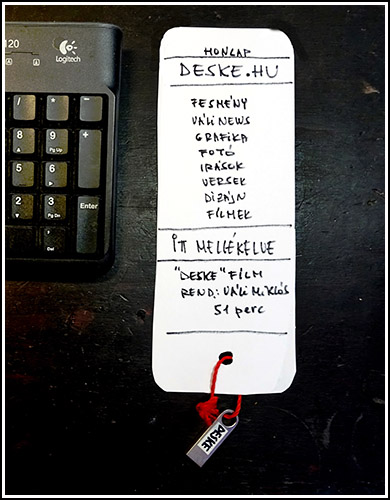 120
Logitech
*
-
8
9
Pg Up
+
5
6
2
3
Pg Dn
Enter
.
Del
HONLAP
DESKE.HU
FESMÉNY
VÁLI NEWS
GRAFIKA
FOTÓ
IRÁSOK
VERSEK
DIZÁJN
FILMEK
ITT MELLÉKELVE
"DESKE" FILM
REND.: VÁLI MIKLÓS
51 perc
DESKE